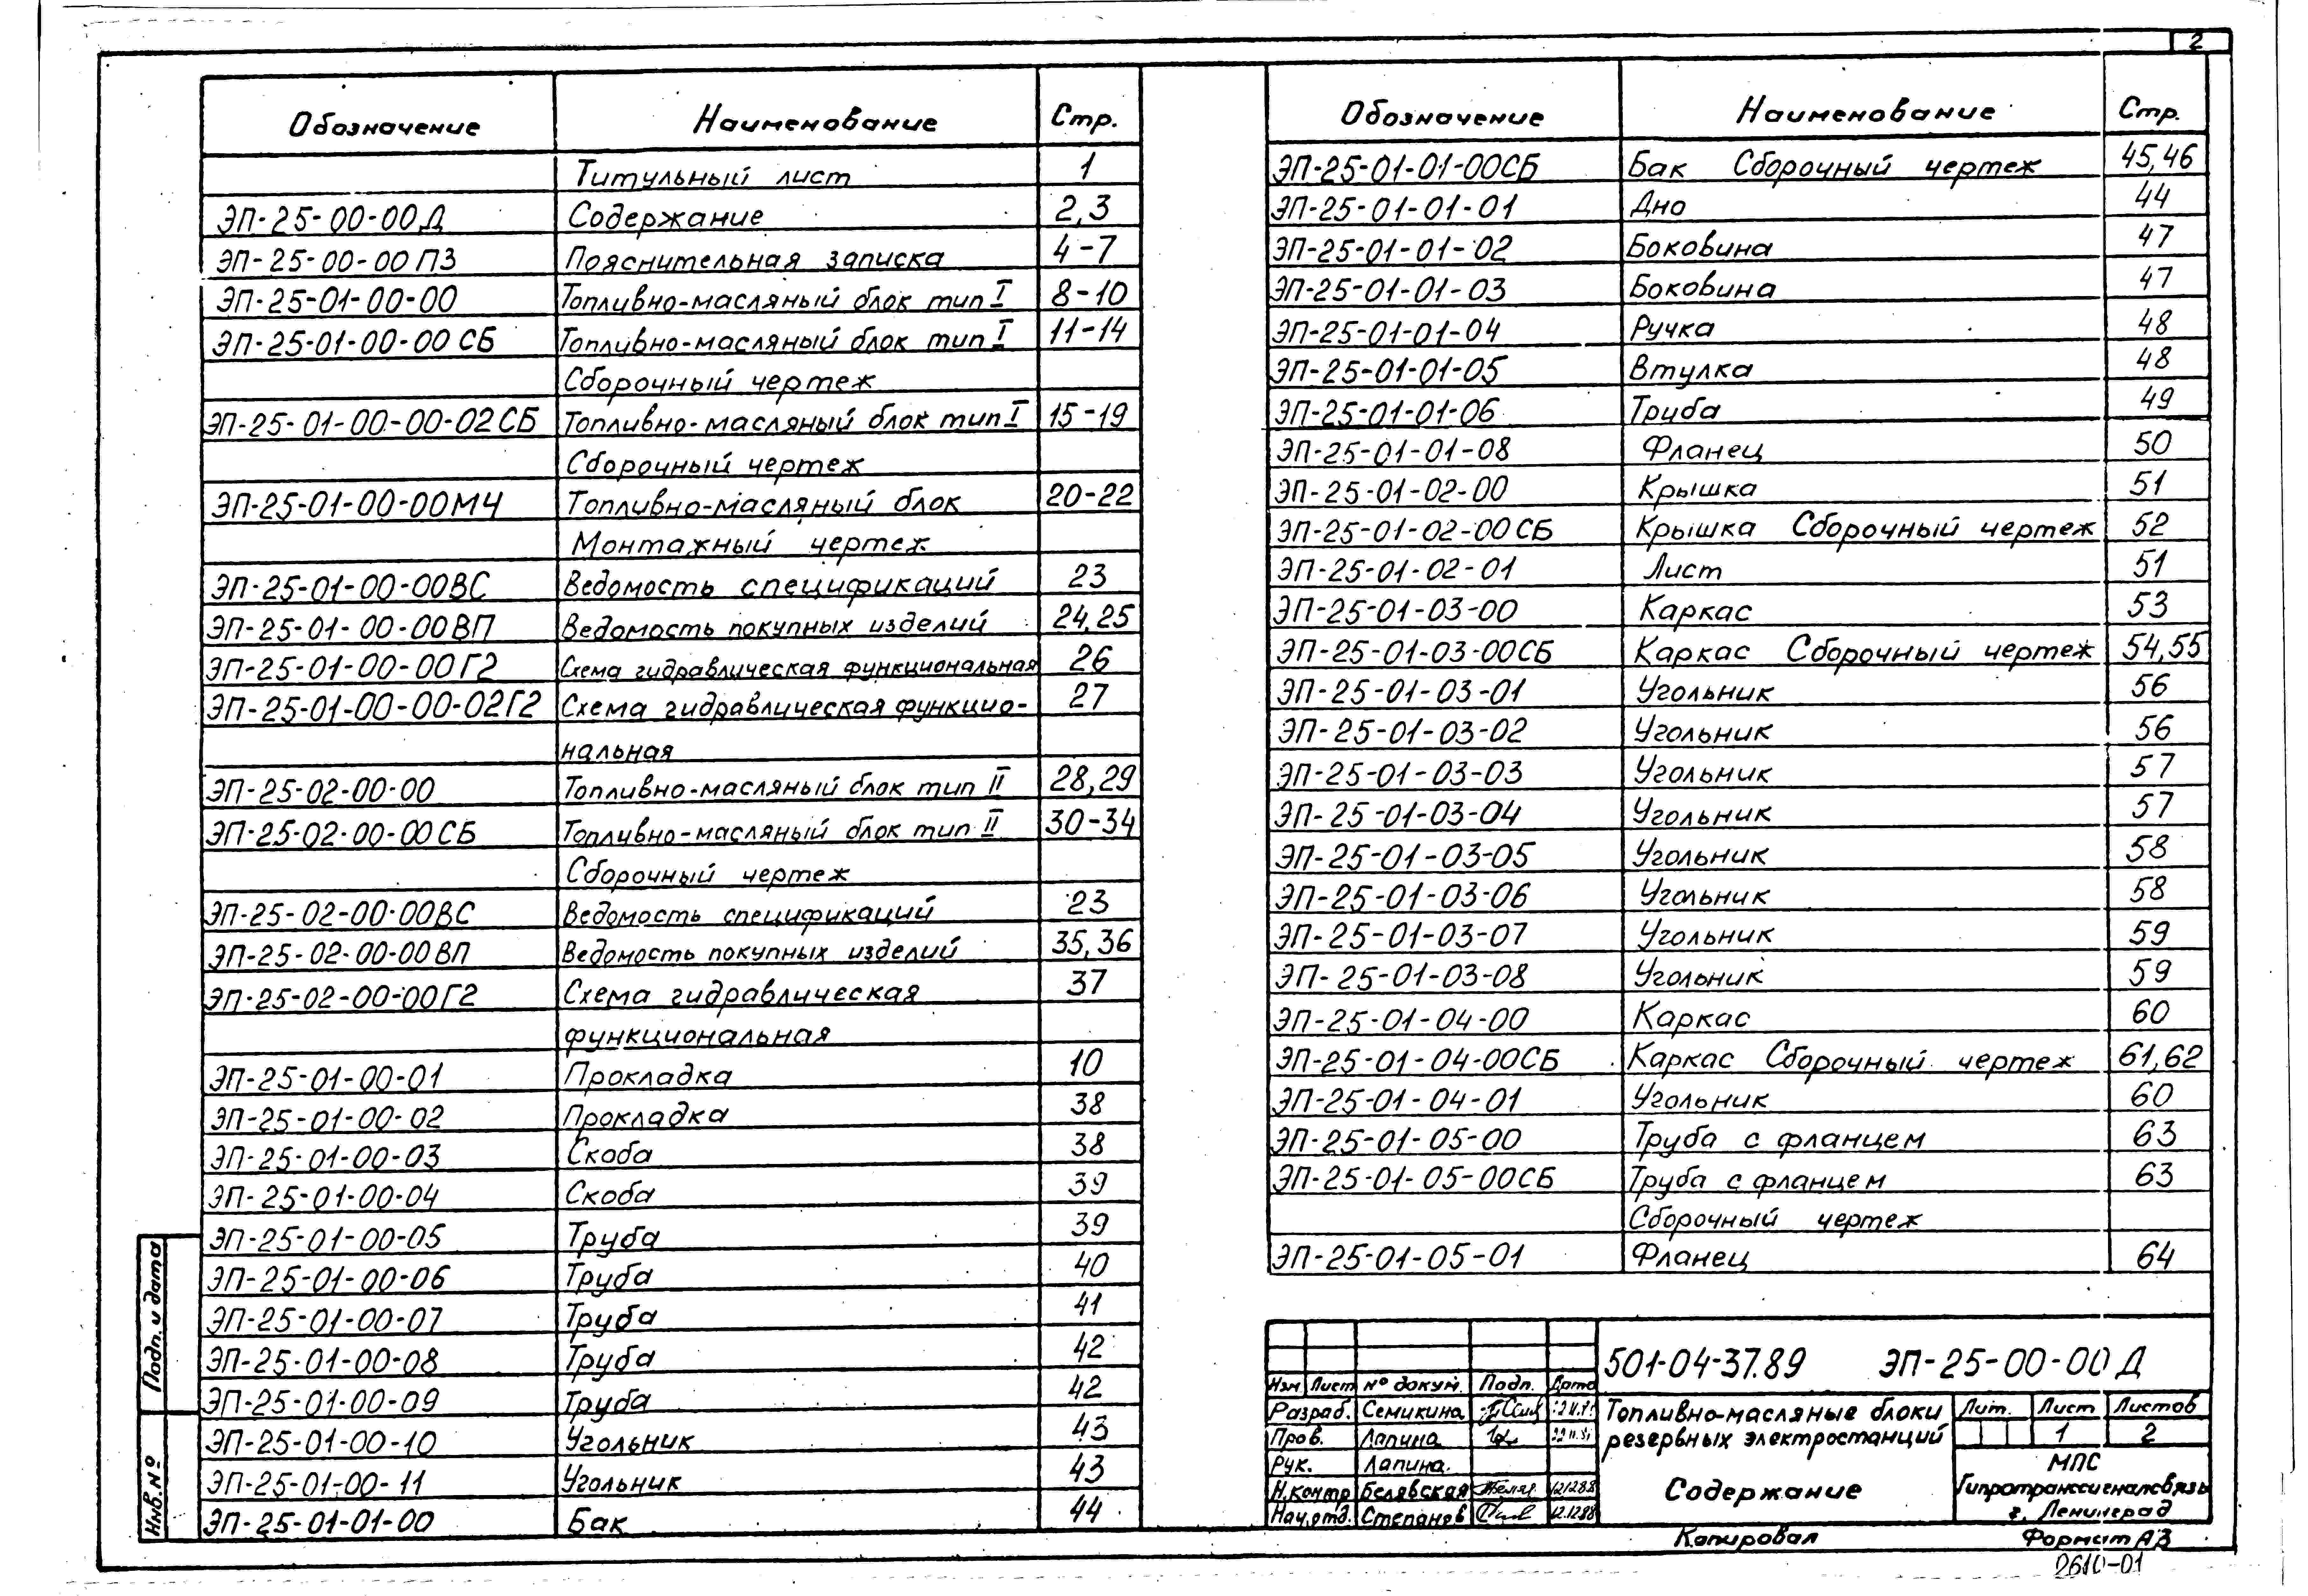 2
Обозначение Наименование Стр.
Титульный лист 1
ЭП-25-00-00Д Содержание 2,3
ЭП-25-00-00ПЗ Пояснительная записка 4-7
ЭП-25-01-00-00 Топливно-масляный блок тип I 8-10
ЭП-25-01-00-00СБ Топливно-масляный блок тип I 11-14
Сборочный чертеж
ЭП-25-01-00-00-02СБ Топливно-масляный блок тип I 15-19
Сборочный чертеж
ЭП-25-01-00-00МЧ Топливно-масляный блок 20-22
Монтажный чертеж
ЭП-25-01-00-00ВС Ведомость спецификаций 23
ЭП-25-01-00-00ВП Ведомость покупных изделий 24,25
ЭП-25-01-00-00Г2 Схема гидравлическая функциональная 26
ЭП-25-01-00-00-02Г2 Схема гидравлическая функцио- 27
нальная
ЭП-25-02-00-00 Топливно-масляный блок тип II 28,29
ЭП-25-02-00-00СБ Топливно-масляный блок тип II 30-34
Сборочный чертеж
ЭП-25-02-00-00ВС Ведомость спецификаций 23
ЭП-25-02-00-00ВП Ведомость покупных изделий 35,36
ЭП-25-02-00-00Г2 Схема гидравлическая 37
функциональная
ЭП-25-01-00-01 Прокладка 10
ЭП-25-01-00-02 Прокладка 38
ЭП-25-01-00-03 Скоба 38
ЭП-25-01-00-04 Скоба 39
ЭП-25-01-00-05 Труба 39
ЭП-25-01-00-06 Труба 40
ЭП-25-01-00-07 Труба 41
ЭП-25-01-00-08 Труба 42
ЭП-25-01-00-09 Труба 42
ЭП-25-01-00-10 Угольник 43
ЭП-25-01-00-11 Угольник 43
ЭП-25-01-01-00 Бак 44
Обозначение Наименование Стр.
ЭП-25-01-01-00СБ Бак Сборочный чертеж 45,46
ЭП-25-01-01-01 Дно 44
ЭП-25-01-01-02 Боковина 47
ЭП-25-01-01-03 Боковина 47
ЭП-25-01-01-04 Ручка 48
ЭП-25-01-01-05 Втулка 48
ЭП-25-01-01-06 Труба 49
ЭП-25-01-01-08 Фланец 50
ЭП-25-01-02-00 Крышка 51
ЭП-25-01-02-00СБ Крышка Сборочный чертеж 52
ЭП-25-01-02-01 Лист 51
ЭП-25-01-03-00 Каркас 53
ЭП-25-01-03-00СБ Каркас Сборочный чертеж 54,55
ЭП-25-01-03-01 Угольник 56
ЭП-25-01-03-02 Угольник 56
ЭП-25-01-03-03 Угольник 57
ЭП-25-01-03-04 Угольник 57
ЭП-25-01-03-05 Угольник 58
ЭП-25-01-03-06 Угольник 58
ЭП-25-01-03-07 Угольник 59
ЭП-25-01-03-08 Угольник 59
ЭП-25-01-04-00 Каркас 60
ЭП-25-01-04-00СБ Каркас Сборочный чертеж 61,62
ЭП-25-01-04-01 Угольник 60
ЭП-25-01-05-00 Труба с фланцем 63
ЭП-25-01-05-00СБ Труба с фланцем 63
Сборочный чертеж
ЭП-25-01-05-01 Фланец 64
501-04-37.89 ЭП-25-00-00Д
Изм Лист № докум. Подп. Дата
Разраб. Семикина
Пров. Лапина
Рук. Лапина
Н.контр Белявская 121288
Нач.отд. Степанов 12.1288
Топливно-масляные блоки
резервных электростанций
Содержание
Лит. Лист Листов
1 2
МПС
Гипротранссигналсвязь
г. Ленинград
Копировал Формат А3
2610-01
Подп. и дата
Инв. №